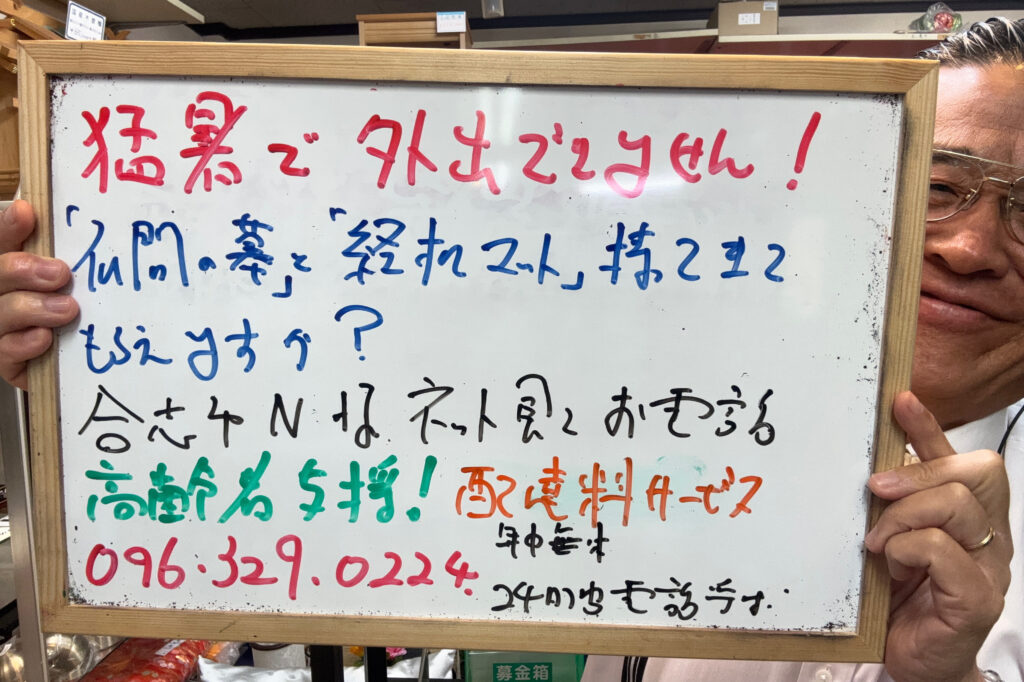 猛暑で 外出でてません！
「仏間の墓」と「経机マット」持てきて
もらえますか？
合志市N様 ネット見てお電話
高齢者支援！ 配達料サービス
096.329.0224.
年中無休
24時間電話
募金箱